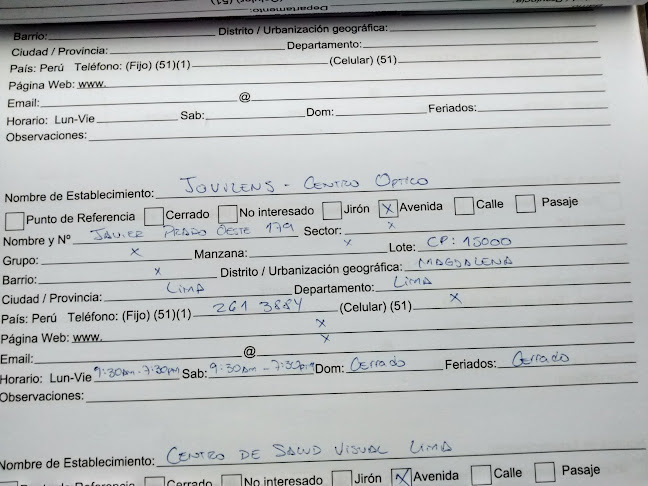 Departamento:
Barrio: Distrito / Urbanización geográfica:
Ciudad / Provincia: Departamento:
País: Perú Teléfono: (Fijo) (51)(1) (Celular) (51)
Página Web: www.
Email: @
Horario: Lun-Vie Sab: Dom: Feriados:
Observaciones:
Nombre de Establecimiento: JOVILENS - CENTRO OPTICO
Punto de Referencia Cerrado No interesado Jirón X Avenida Calle Pasaje
Nombre y Nº JAVIER PRADO OESTE 179 Sector: X
Grupo: X Manzana: X Lote: CP: 15000
Barrio: X Distrito / Urbanización geográfica: MAGDALENA
Ciudad / Provincia: LIMA Departamento: LIMA
País: Perú Teléfono: (Fijo) (51)(1) 261 3884 (Celular) (51) X
Página Web: www. X
Email: X @
Horario: Lun-Vie 9:30am - 7:30pm Sab: 9:30am - 7:30pm Dom: Cerrado Feriados: Cerrado
Observaciones:
Nombre de Establecimiento: CENTRO DE SALUD VISUAL LIMA
Punto de Referencia Cerrado No interesado Jirón X Avenida Calle Pasaje